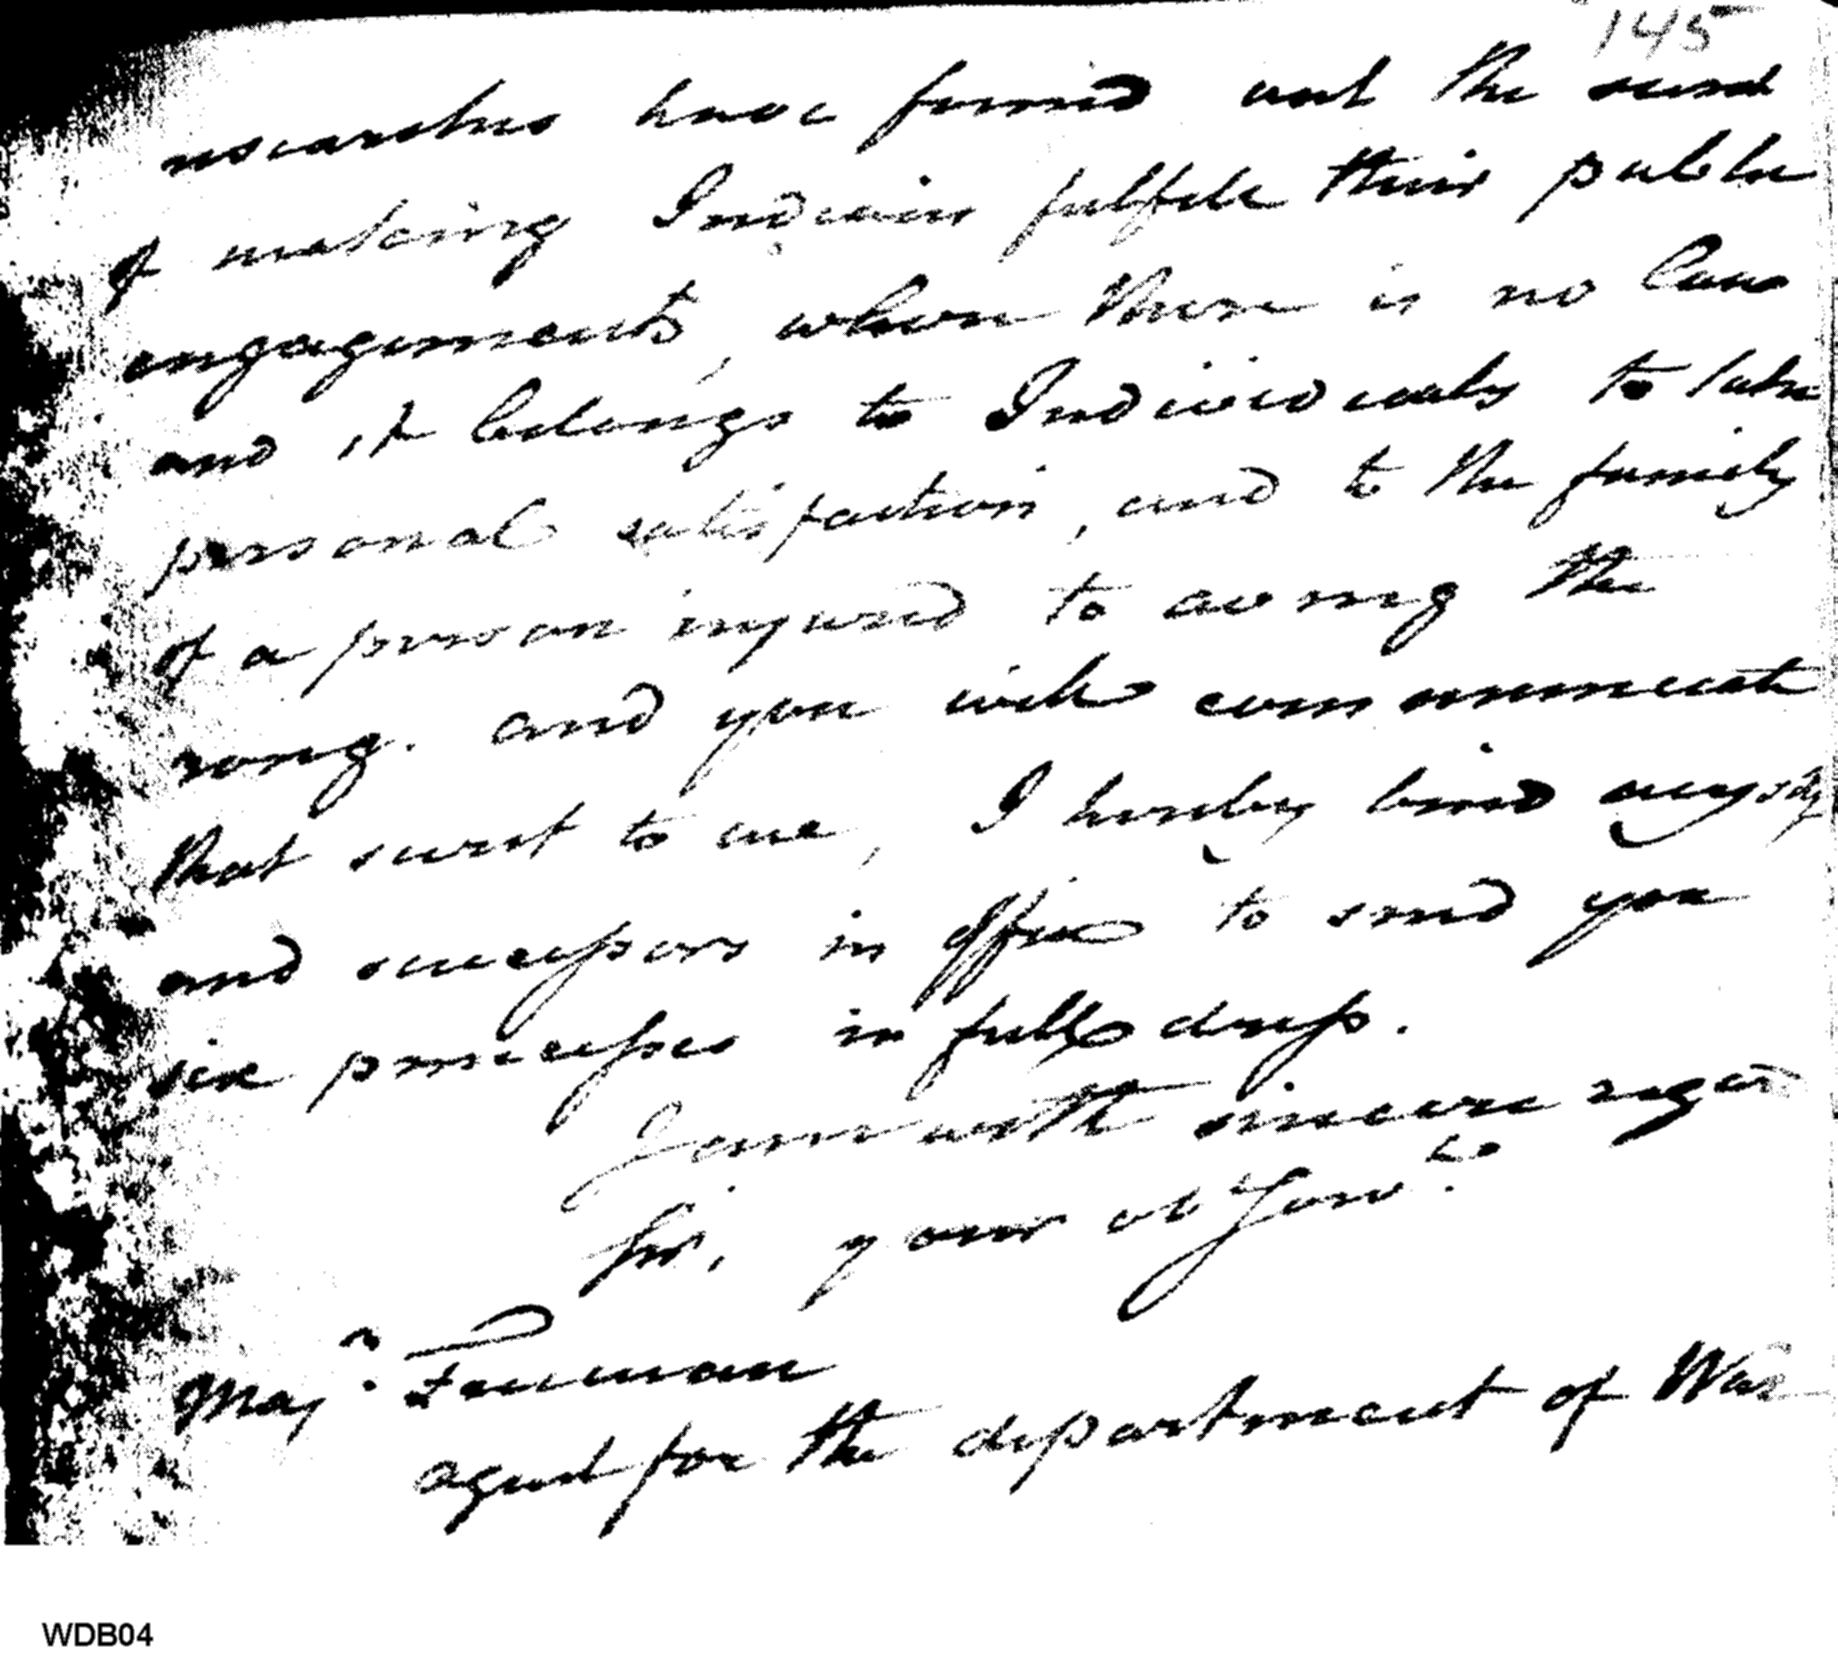 145
researches have found out the secret
of making Indians fulfill their public
engagements, where there is no law
and it belongs to Individuals to take
personal satisfaction, and to the family
of a person injured to aveng the
rong. and you will communicate
that secret to me, I hereby bind myself
and successors in office to send you
six princesses in full dress.
I am with sincere regard
Sir, your ob Serv.t
Maj.r Freeman
agent for the department of War
WDB04